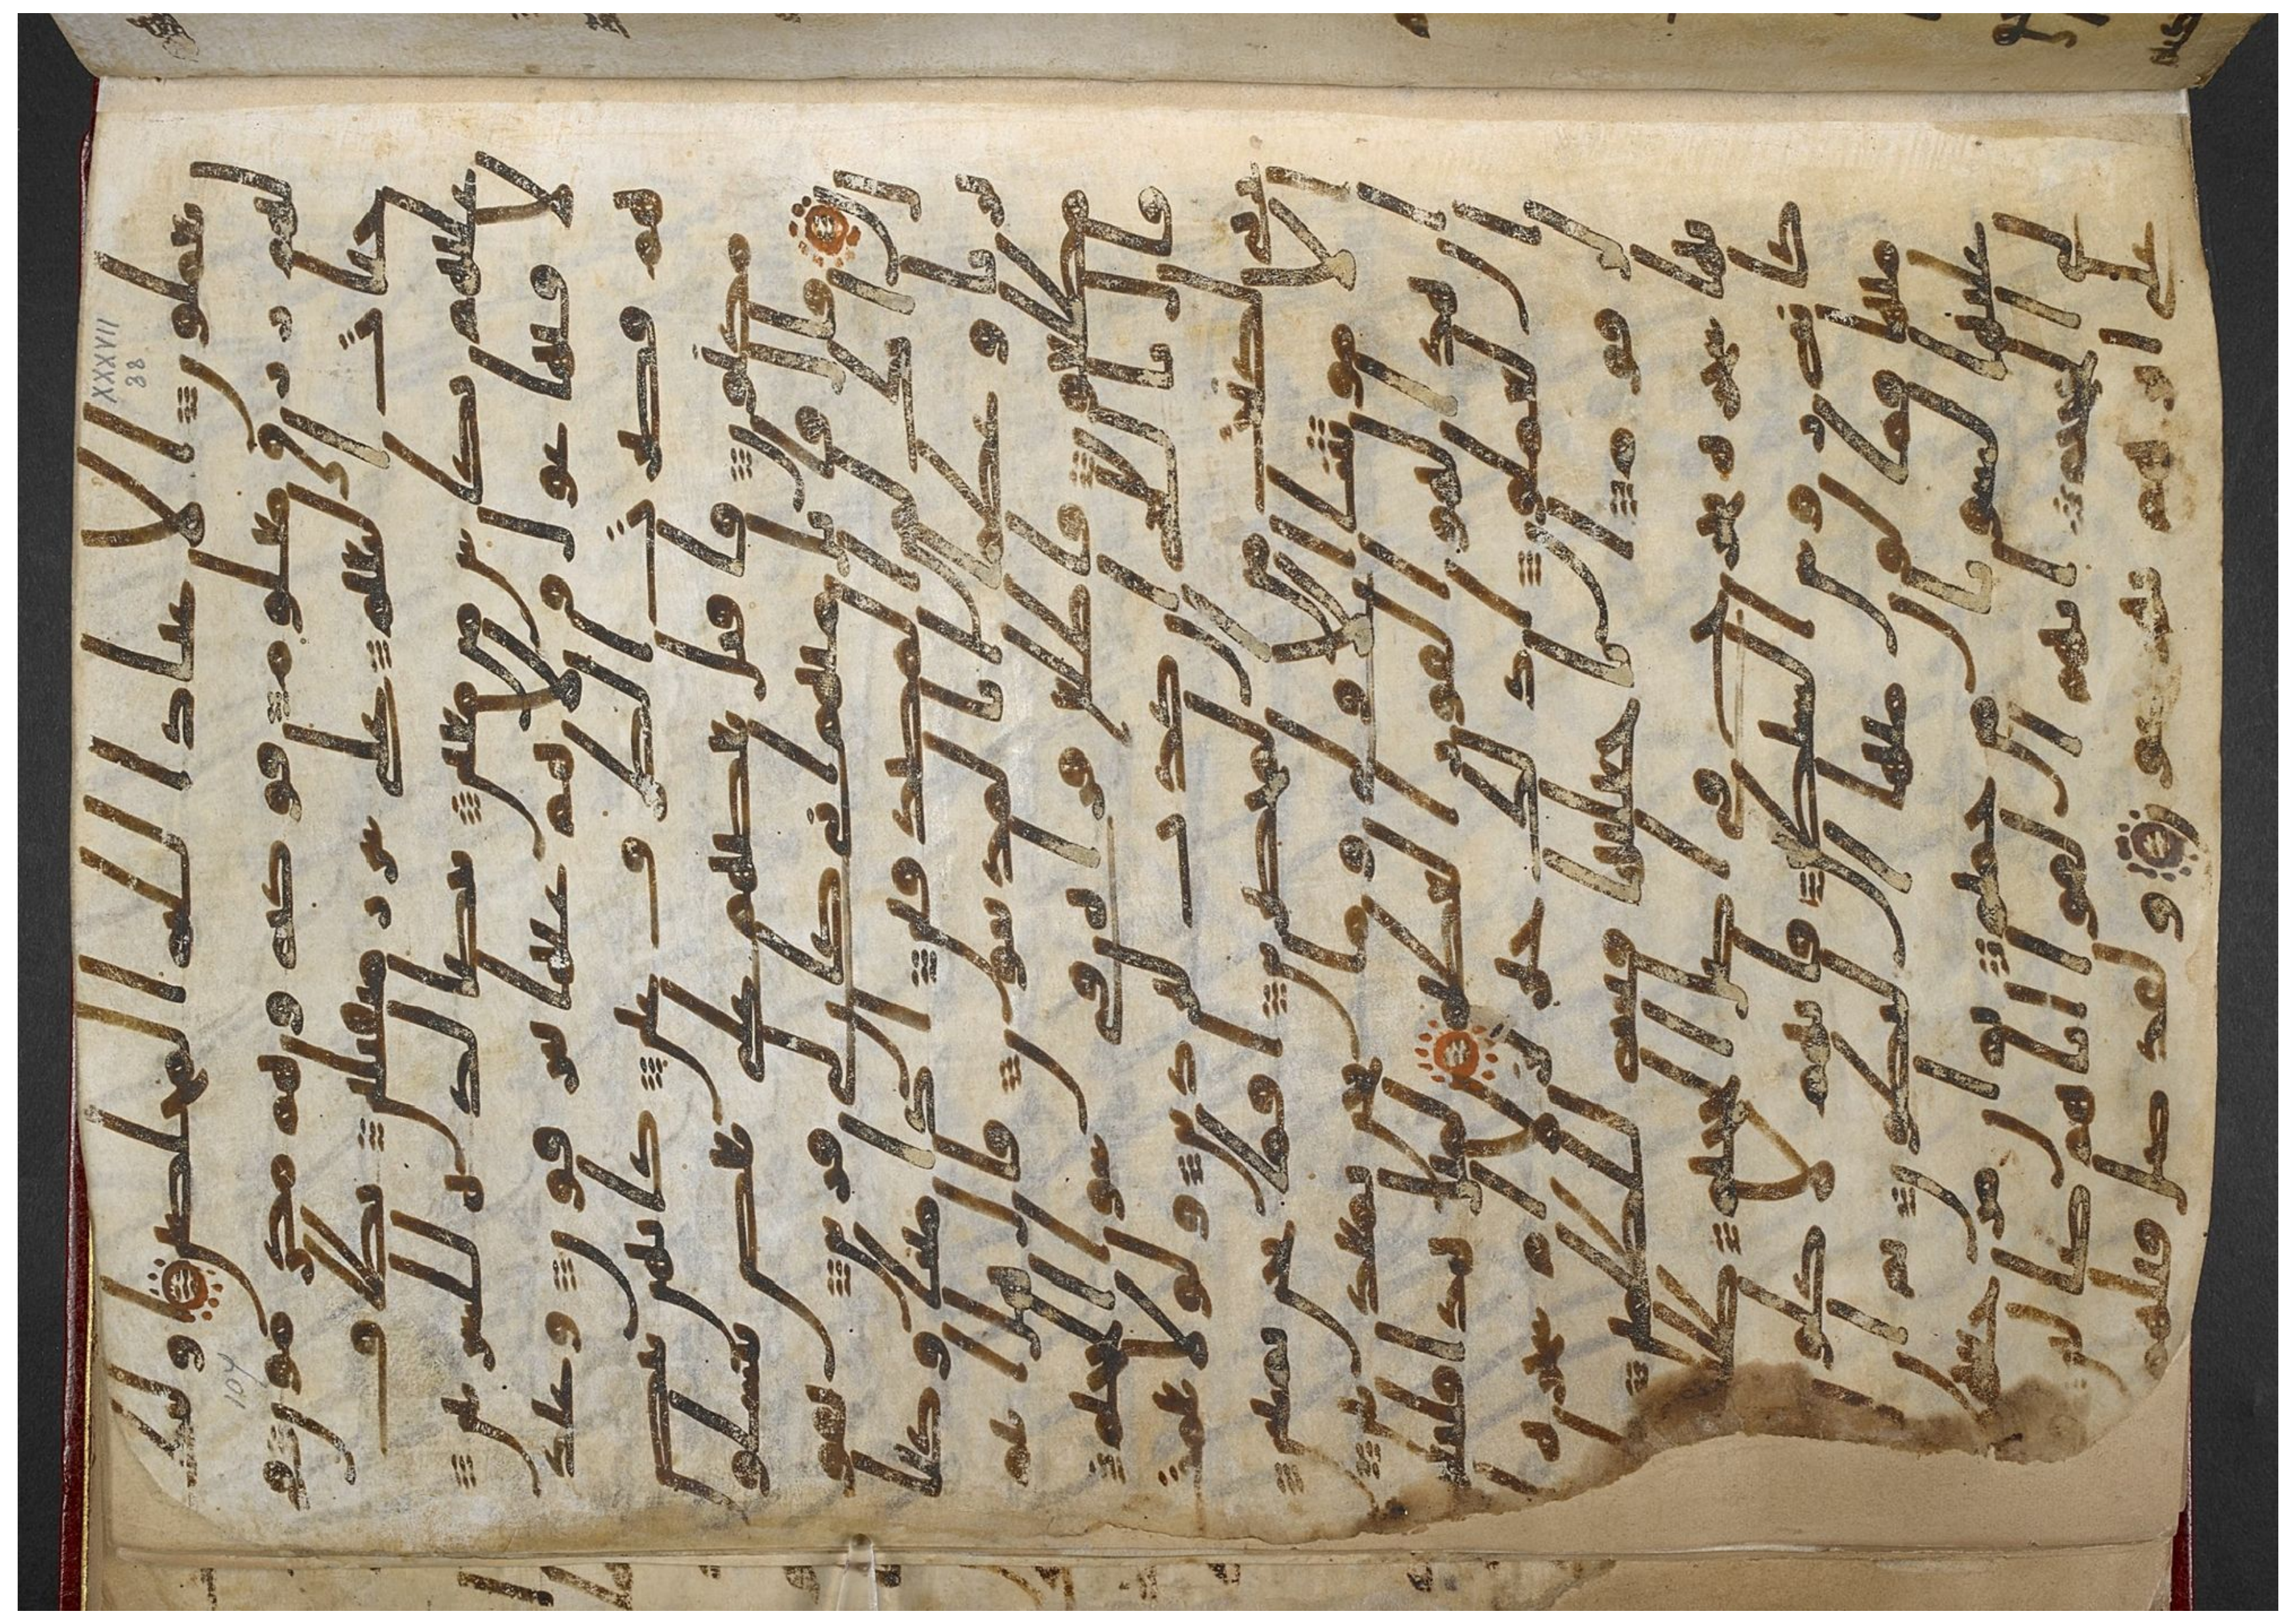 XXXVII
38
تعملون الا عباد الله المخلصين اوليك
لهم رزق معلوم فوكه وهم مكرمون في
جنت النعيم على سرر متقبلين يطاف
عليهم بكاس من معين بيضا لذه للشربين
لا فيها غول ولا هم عنها ينزفون وعند
هم قصرت الطرف عين كانهن بيض
مكنون فاقبل بعضهم على بعض يتسالو
ن قال قايل منهم اني كان لي قرين يقول
انك لمن المصدقين اذا متنا وكنا
ترابا وعظما انا لمدينون قال هل انتم
مطلعون فاطلع فراه في سوا الجحيم
قال تالله ان كدت لتردين ولولا نعمه
ربي لكنت من المحضرين افما نحن بميتين
الا موتتنا الاولى وما نحن بمعذبين
ان هذا لهو الفوز العظيم لمثل هذا فليعمل
العملون اذلك خير نزلا ام شجره ا
لزقوم انا جعلنها فتنه للظلمين
انها شجره تخرج في اصل الجحيم طلعها
كانه روس الشيطين فانهم لاكلو
ن منها فمالون منها البطون ثم ان
لهم عليها لشوبا من حميم ثم ان مرجعهم
لالى الجحيم انهم الفوا اباهم ضالين
فهم على اثرهم يهرعون ولقد ضل قبلهم